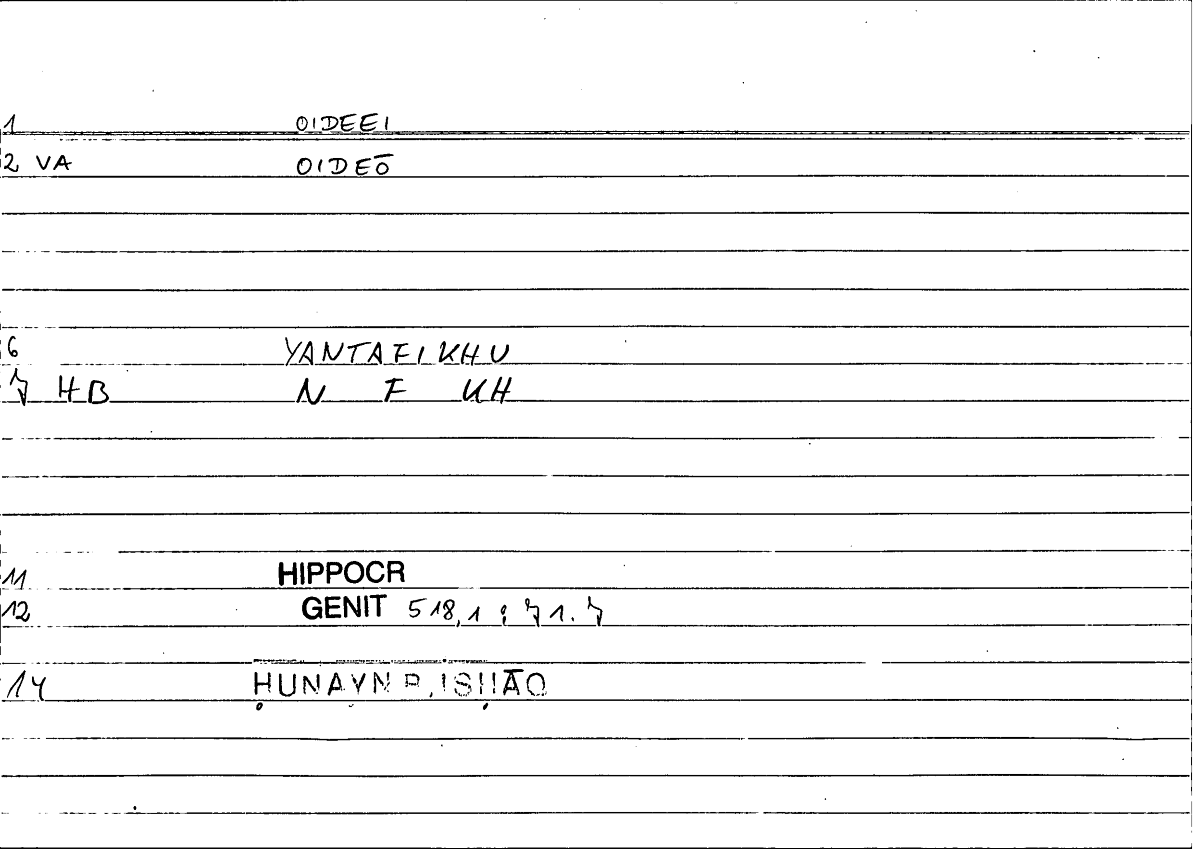 1 OIDEEI
2 VA OIDEŌ
6 YANTAFIKHU
7 HB N F KH
11 HIPPOCR
12 GENIT 518,1 ; 71.7
14 ḤUNAYN B. ISḤĀQ